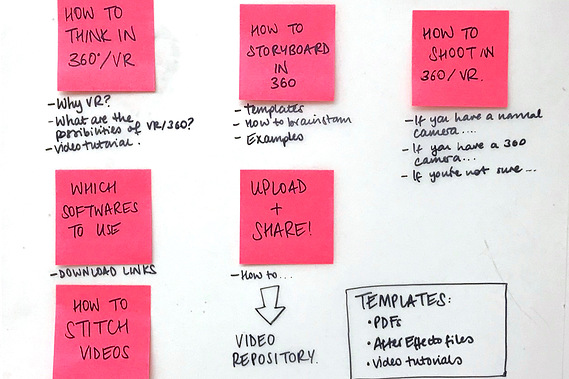 HOW TO
THINK IN
360°/VR
- Why VR?
- What are the
possibilities of VR/360?
- Video tutorial.
HOW TO
STORYBOARD
IN
360
- Templates
- How to brainstorm
- Examples
HOW TO
SHOOT IN
360/VR.
- If you have a normal
camera...
- If you have a 360
camera...
- If you're not sure...
WHICH
SOFTWARES
TO USE
- DOWNLOAD LINKS
UPLOAD
+
SHARE!
- How to...
VIDEO
REPOSITORY.
HOW TO
STITCH
VIDEOS
TEMPLATES:
• PDFs
• After Effects files
• Video tutorials